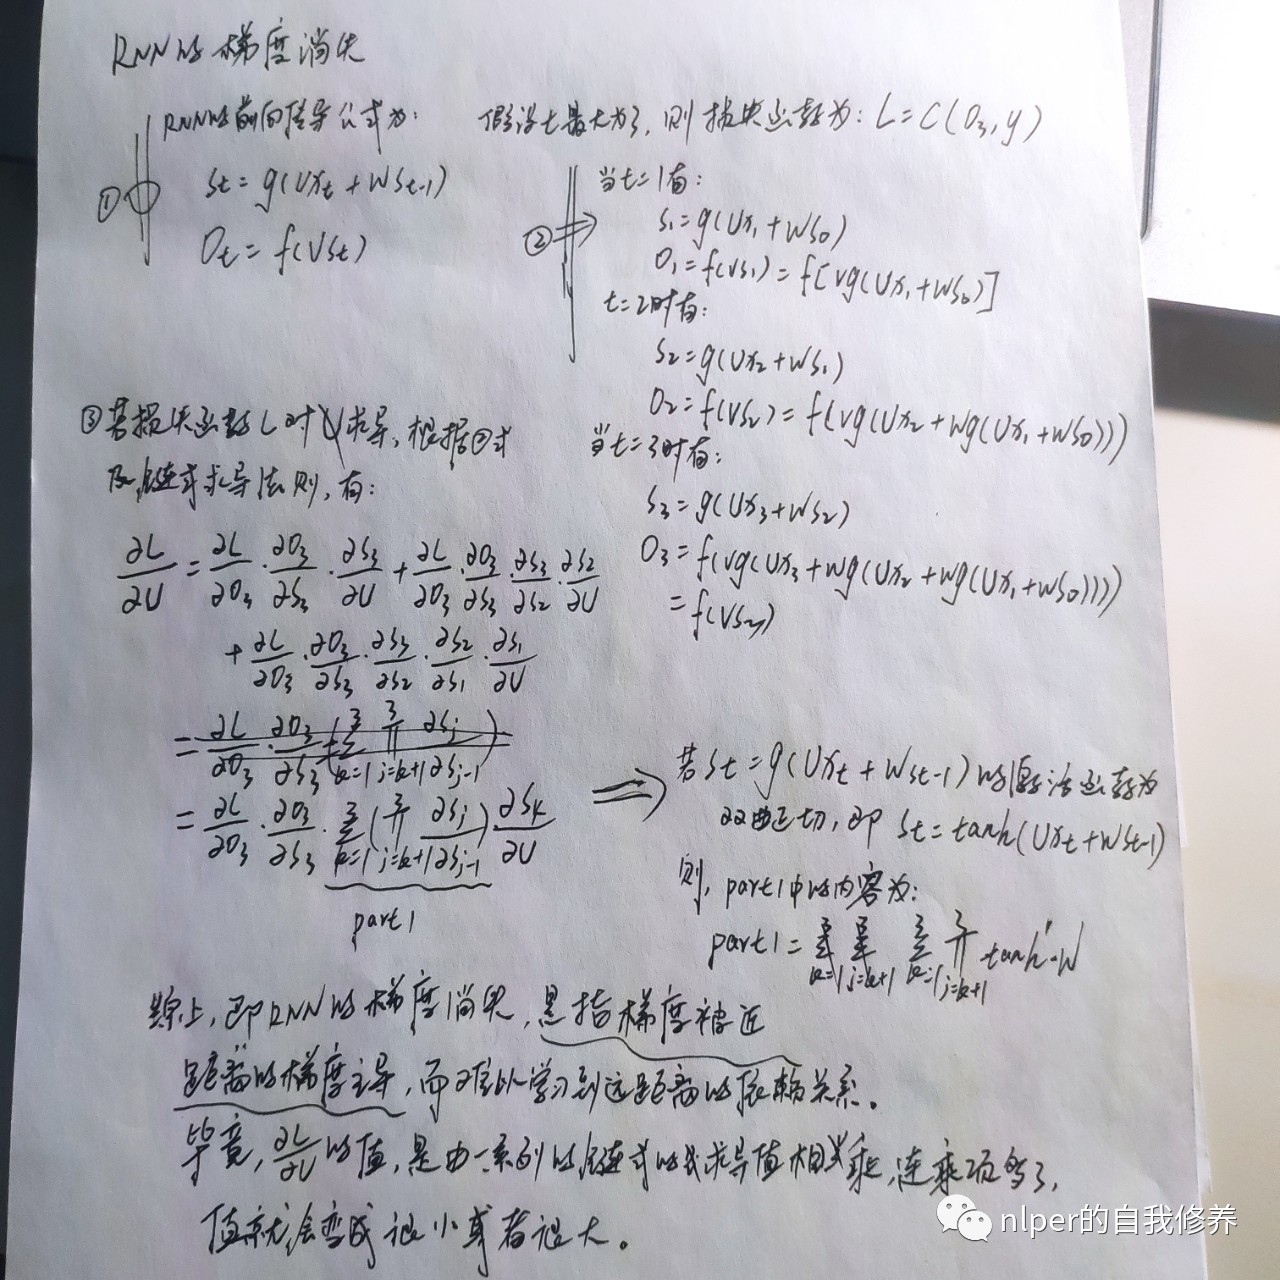 RNN的梯度消失
RNN的前向传导公式为:
① St = g(Uxt + WSt-1)
Ot = f(VSt)
假设t最大为3, 则损失函数为: L = C(O3, y)
② ⇒ 当t=1有:
S1 = g(Ux1 + WS0)
O1 = f(VS1) = f[Vg(Ux1 + WS0)]
t=2时有:
S2 = g(Ux2 + WS1)
O2 = f(VS2) = f(Vg(Ux2 + Wg(Ux1 + WS0)))
当t=3时有:
S3 = g(Ux3 + WS2)
O3 = f(Vg(Ux3 + Wg(Ux2 + Wg(Ux1 + WS0))))
= f(VS3)
③若损失函数L对U求导, 根据②式
及链式求导法则, 有:
∂L/∂U = ∂L/∂O3 · ∂O3/∂S3 · ∂S3/∂U + ∂L/∂O3 · ∂O3/∂S3 · ∂S3/∂S2 · ∂S2/∂U
+ ∂L/∂O3 · ∂O3/∂S3 · ∂S3/∂S2 · ∂S2/∂S1 · ∂S1/∂U
= ∂L/∂O3 · ∂O3/∂S3 · Σ(k=1→3) (Π(j=k+1→3) ∂Sj/∂Sj-1) · ∂Sk/∂U
part1
⇒ 若St = g(Uxt + WSt-1)的激活函数为
双曲正切, 即 St = tanh(Uxt + WSt-1)
则, part1中的内容为:
part1 = Σ(k=1→3) Π(j=k+1→3) tanh'·W
综上, 即RNN的梯度消失, 是指梯度被近
距离的梯度主导, 而难以学习到远距离的依赖关系。
毕竟, ∂L/∂U的值, 是由一系列的链式的求导值相乘, 连乘项多了,
值就会变成很小或者很大。
nlper的自我修养